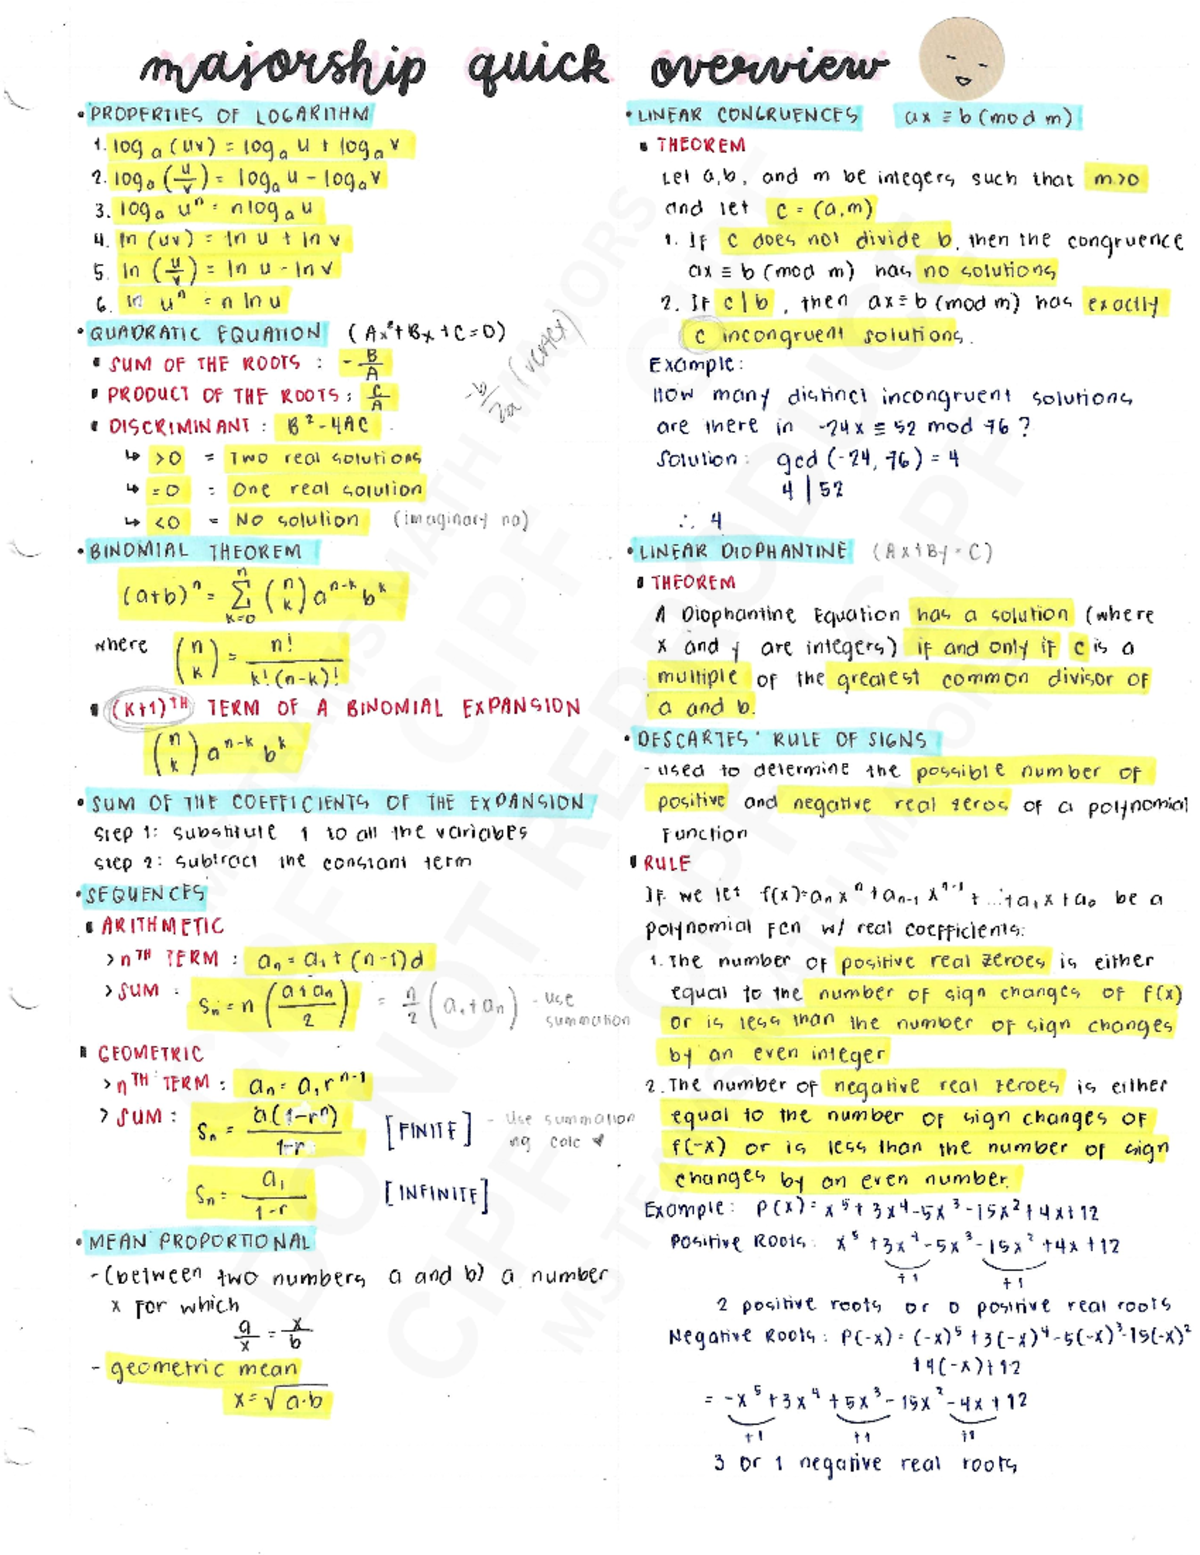 majorship quick overview
• PROPERTIES OF LOGARITHM
1. log_a (uv) = log_a u + log_a v
2. log_a (u/v) = log_a u - log_a v
3. log_a u^n = n log_a u
4. ln (uv) = ln u + ln v
5. ln (u/v) = ln u - ln v
6. ln u^n = n ln u
• QUADRATIC EQUATION (Ax² + Bx + C = 0)
SUM OF THE ROOTS : - B/A
PRODUCT OF THE ROOTS : C/A
-b/2a (vertex)
DISCRIMINANT : B² - 4AC
↳ >0 = Two real solutions
↳ =0 = One real solution
↳ <0 = No solution (imaginary no)
• BINOMIAL THEOREM
(a+b)^n = Σ_{k=0}^{n} (n k) a^{n-k} b^k
where (n k) = n! / k!(n-k)!
(k+1)^TH TERM OF A BINOMIAL EXPANSION
(n k) a^{n-k} b^k
• SUM OF THE COEFFICIENTS OF THE EXPANSION
Step 1: Substitute 1 to all the variables
Step 2: Subtract the constant term
• SEQUENCES
ARITHMETIC
> n^TH TERM : a_n = a_1 + (n-1)d
> SUM : S_n = n (a + a_n / 2) = n/2 (a_1 + a_n) - use
summation
GEOMETRIC
> n^TH TERM : a_n = a_1 r^{n-1}
> SUM : S_n = a(1-r^n) / 1-r [FINITE] - use summation
ng calc
S_n = a_1 / 1-r [INFINITE]
• MEAN PROPORTIONAL
- (between two numbers a and b) a number
x for which
a/x = x/b
- geometric mean
x = √a·b
• LINEAR CONGRUENCES ax ≡ b (mod m)
THEOREM
Let a, b, and m be integers such that m>0
and let c = (a,m)
1. If c does not divide b, then the congruence
ax ≡ b (mod m) has no solutions
2. If c | b, then ax ≡ b (mod m) has exactly
c incongruent solutions.
Example:
How many distinct incongruent solutions
are there in -24x ≡ 52 mod 76?
Solution: gcd (-24, 76) = 4
4 | 52
∴ 4
• LINEAR DIOPHANTINE (Ax + By = C)
THEOREM
A Diophantine Equation has a solution (where
x and y are integers) if and only if c is a
multiple of the greatest common divisor of
a and b.
• DESCARTES' RULE OF SIGNS
- used to determine the possible number of
positive and negative real zeros of a polynomial
function
RULE
If we let f(x) = a_n x^n + a_{n-1} x^{n-1} + ... + a_1 x + a_0 be a
polynomial fcn w/ real coefficients:
1. The number of positive real zeroes is either
equal to the number of sign changes of f(x)
or is less than the number of sign changes
by an even integer
2. The number of negative real zeroes is either
equal to the number of sign changes of
f(-x) or is less than the number of sign
changes by an even number.
Example: P(x) = x^5 + 3x^4 - 5x^3 - 15x^2 + 4x + 12
Positive Roots: x^5 + 3x^4 - 5x^3 - 15x^2 + 4x + 12
+1 +1
2 positive roots or 0 positive real roots
Negative Roots: P(-x) = (-x)^5 + 3(-x)^4 - 5(-x)^3 - 15(-x)^2
+4(-x)+12
= -x^5 + 3x^4 + 5x^3 - 15x^2 - 4x + 12
+1 +1 +1
3 or 1 negative real roots